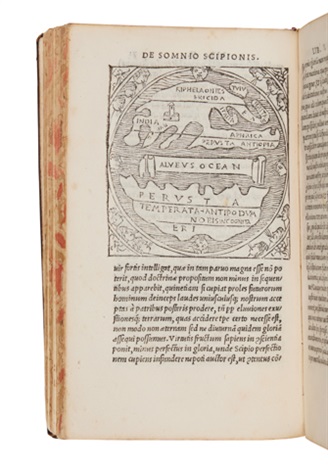 DE SOMNIO SCIPIONIS.
FRIGIDA
INDIA
PERVSTA
ALVEVS OCEANI
PERVSTA
TEMPERATA ANTIPODVM
NOBIS INCOGNITA
uir fortis intelliget, quæ in tam paruo magna esse nõ po
terit, quod doctrinæ propositum non minus in sequen
tibus apparebit, quinetiam si cupiat proles futurorum
hominum deinceps laudes uniuscuiusq; nostrum acce
ptas à patribus posteris prodere, tñ pp eluuiones exu-
stionesq; terrarum, quas accidere tpe certo necesse est,
non modo non æternam sed ne diuturnã quidem gloriã
assequi possumus. Virtutis fructum sapiens in cõscientia
ponit, minus perfectus in gloria, unde Scipio perfectio
nem cupiens infundere nepoti auctor est, ut